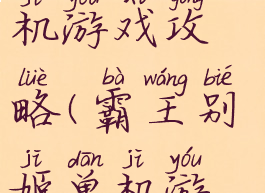 jī yóu xì gōng
机游戏攻
lüè bà wáng bié
略(霸王别
jī dān jī yóu
姬单机游